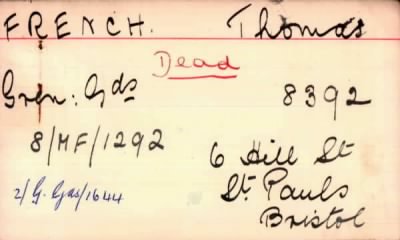 FRENCH. Thomas
Dead
Gren: Gds 8392
8/MF/1292
6 Hill St
2/G.Gds/1644
St. Pauls
Bristol